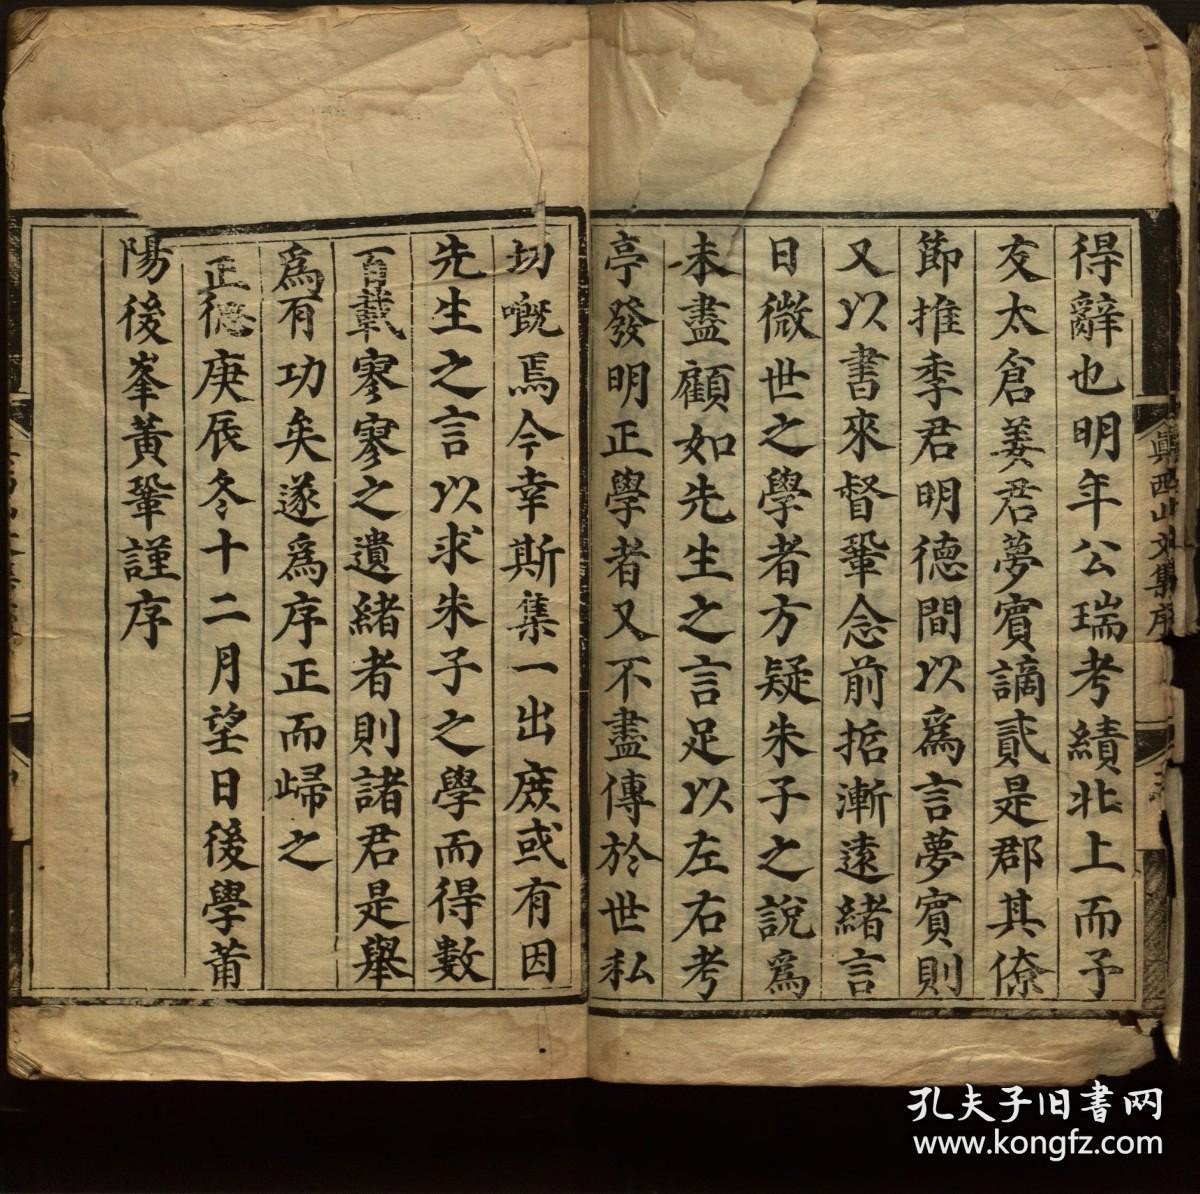 得辭也明年公瑞考績北上而予
友太倉姜君夢賓謫貳是郡其僚
節推季君明德間以為言夢賓則
又以書來督鞏念前哲漸遠緒言
日微世之學者方疑朱子之說為
未盡顧如先生之言足以左右考
亭發明正學者又不盡傳於世私
切嘅焉今幸斯集一出庻或有因
先生之言以求朱子之學而得數
百載寥寥之遺緒者則諸君是舉
爲有功矣遂爲序正而歸之
正德庚辰冬十二月望日後學莆
陽後峯黃鞏謹序
眞西山文集序
孔夫子旧書网
www.kongfz.com